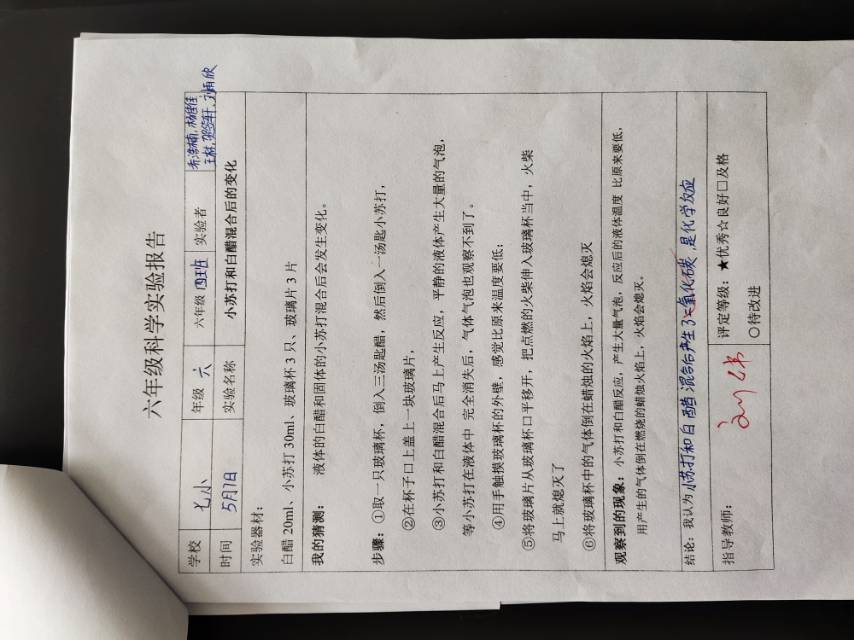 六年级科学实验报告
学校 七小 年级 六 六年级 四班 实验者 杨佳佳
时间 5月7日 实验名称 小苏打和白醋混合后的变化
实验器材：
白醋 20ml、小苏打 30ml、玻璃杯 3 只、玻璃片 3 片
我的猜测： 液体的白醋和固体的小苏打混合后会发生变化。
步骤：①取一只玻璃杯，倒入三汤匙醋，然后倒入一汤匙小苏打，
②在杯子口上盖上一块玻璃片，
③小苏打和白醋混合后马上产生反应，平静的液体产生大量的气泡，
等小苏打在液体中 完全消失后，气体气泡也观察不到了。
④用手触摸玻璃杯的外壁，感觉比原来温度要低；
⑤将玻璃片从玻璃杯口平移开，把点燃的火柴伸入玻璃杯当中，火柴
马上就熄灭了
⑥将玻璃杯中的气体倒在蜡烛的火焰上，火焰会熄灭
观察到的现象：小苏打和白醋反应，产生大量气泡，反应后的液体温度 比原来要低，
用产生的气体倒在燃烧的蜡烛火焰上，火焰会熄灭。
结论：我认为 小苏打和白醋混合后产生了二氧化碳，是化学反应
指导教师： 评定等级：★优秀☆良好□及格
○待改进